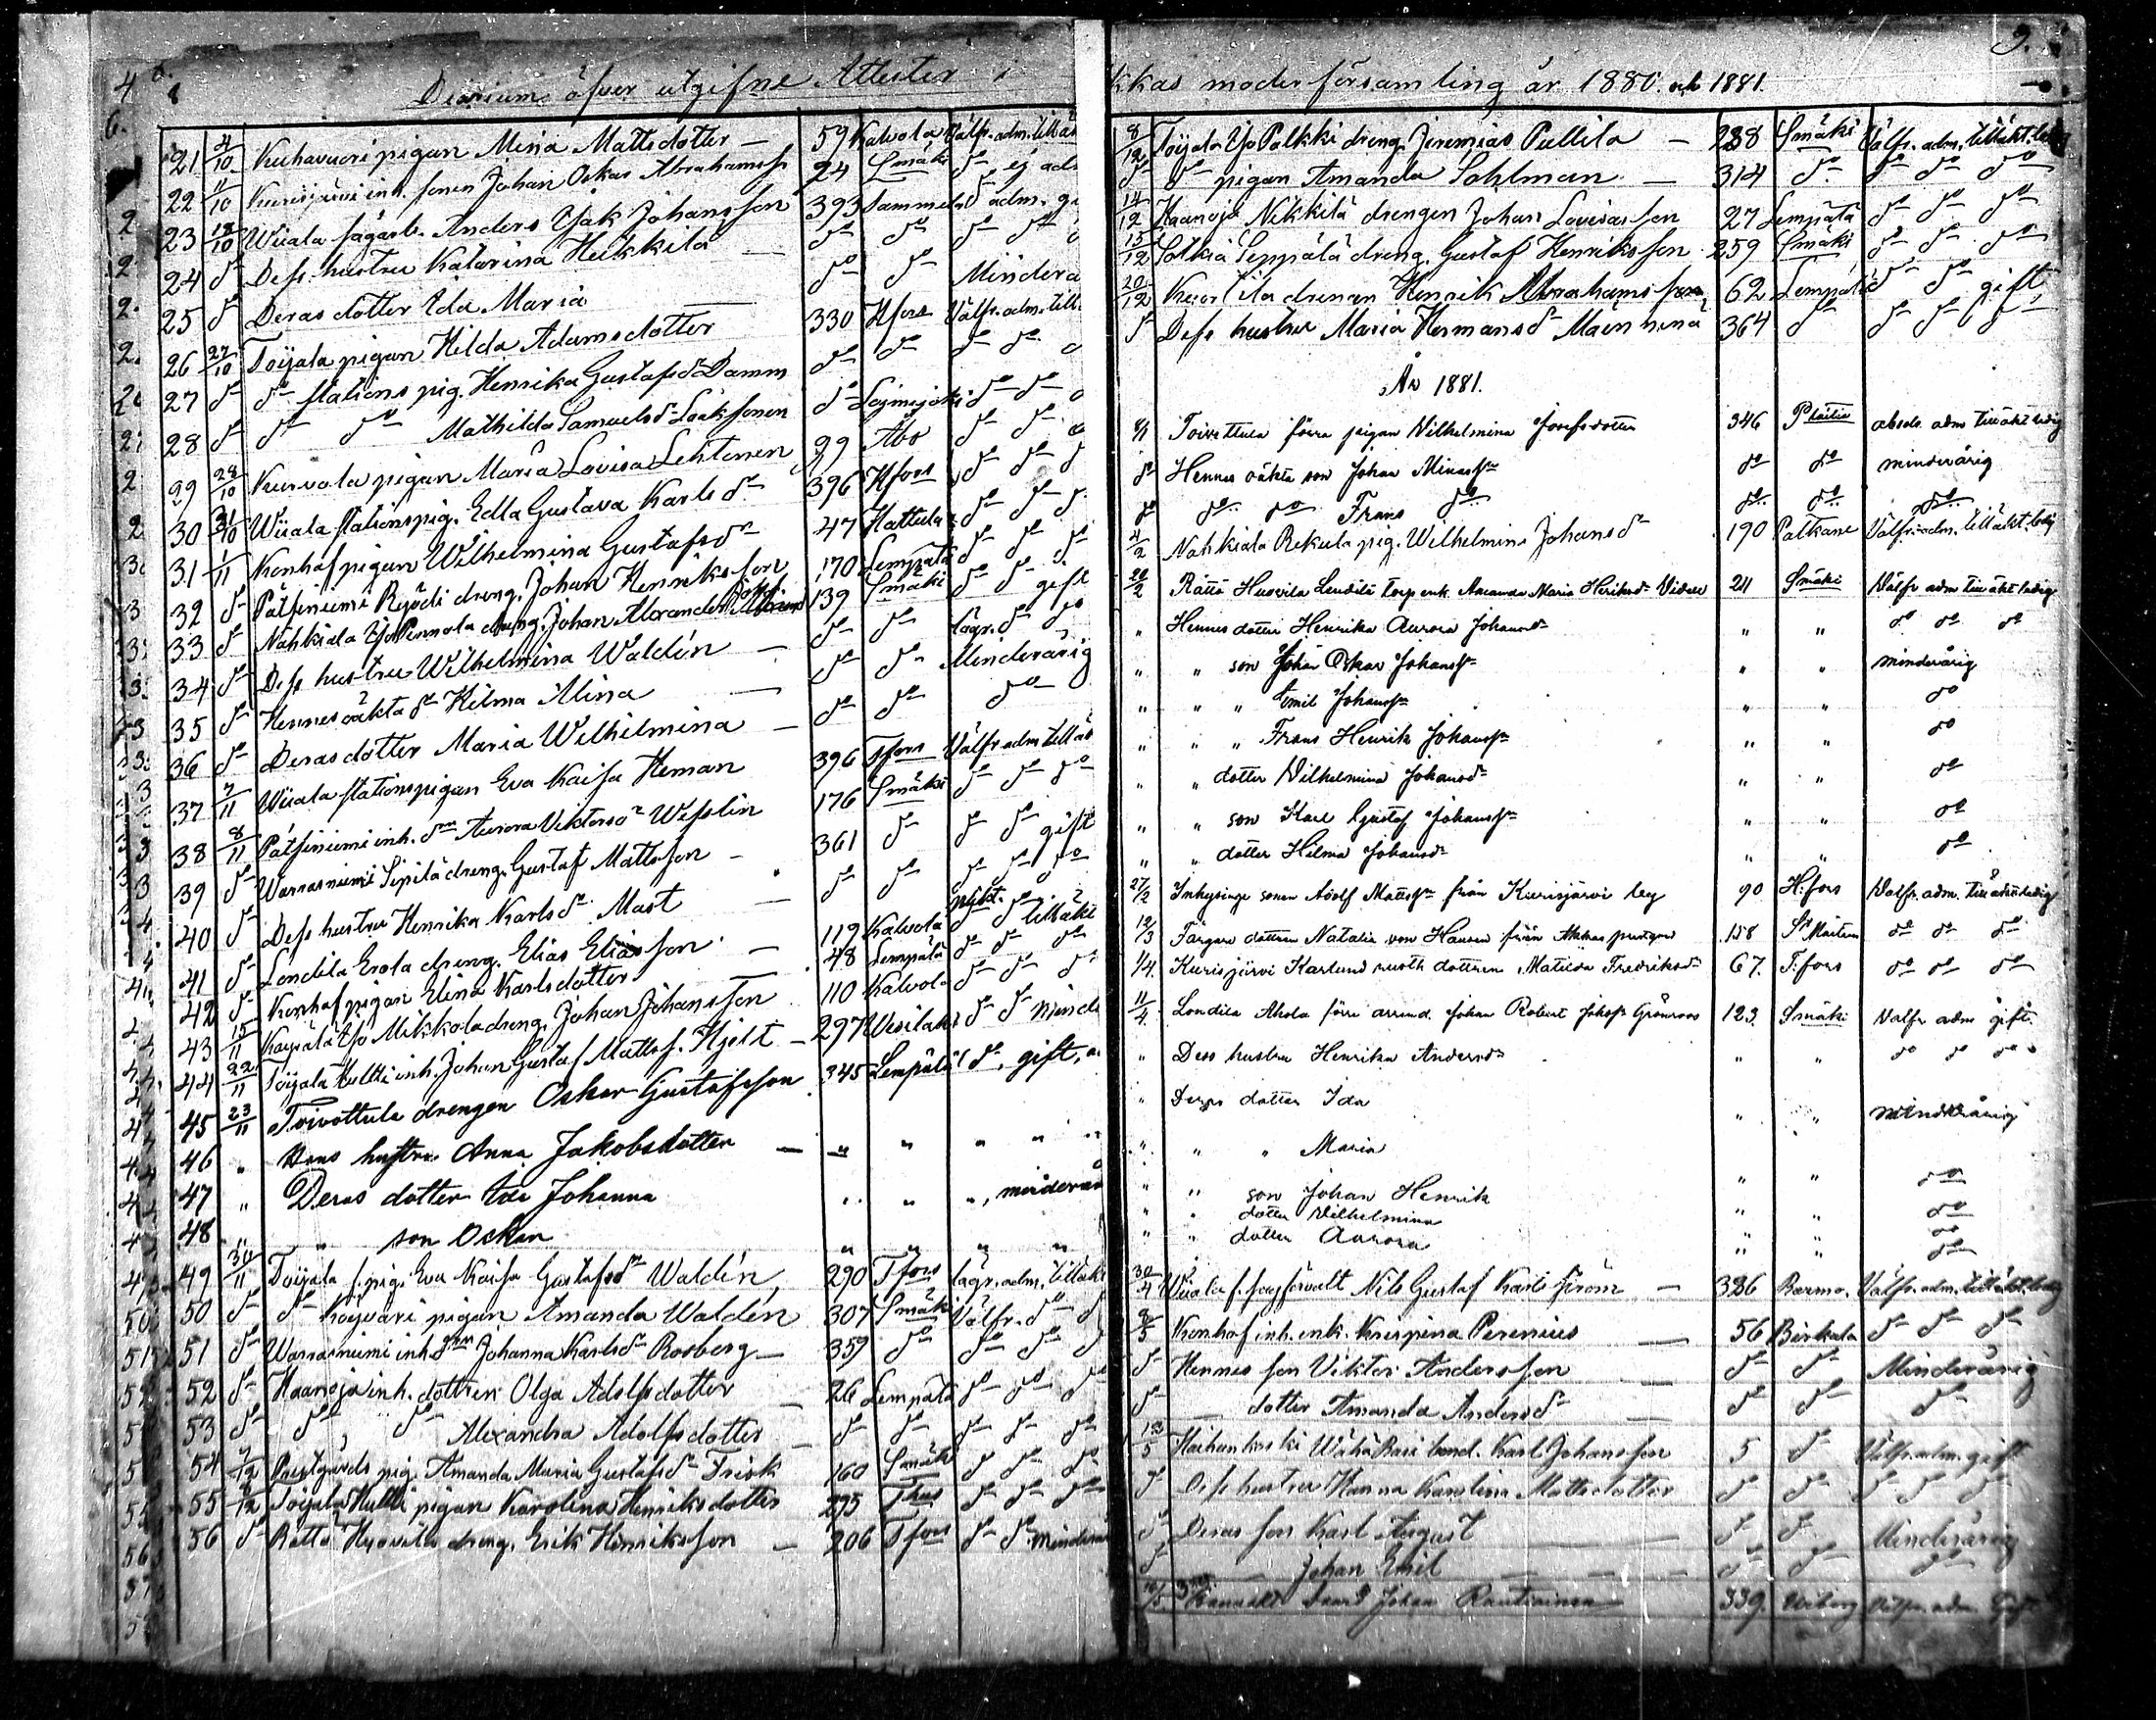 Diarium öfver utgifne Attester i
21 4/10 Kuhavuori pigan Mina Mattsdotter — 59 Kalvola Välfr. adm. till äk
22 11/10 Kurisjärvi inh. sonen Johan Oskar Abrahamss. 24 Smäki do ej adm
23 18/10 Wiiala sågarb. Anders Isak Johansson 393 Tammela do adm. gi
24 do Dess hustru Katarina Heikkilä — do do do do
25 do Deras dotter Ida Maria — do do Mindera
26 27/10 Toijala pigan Hilda Adamsdotter 330 Hfors Välfr. adm. till
27 do do stations pig. Henrika Gustafsdr Damm do do do do
28 do do do Mathilda Samuelsdr Isaksonen do do do
29 28/10 Kurvola pigan Maria Lovisa Lehtonen 99 Åbo do do
30 31/10 Wiiala stationspig. Edla Gustava Karlsdr 396 Hfors do do do
31 1/11 Konhof pigan Wilhelmina Gustafsdr 47 Hattula do do do
32 do Pätsiniemi Ryödi dreng. Johan Henriksson 170 Lempäla do do do
33 do Nahkiala Yjo Pennola dreng. Johan Alexander 139 Smäki do do gift
34 do Dess hustru Wilhelmina Waldén — do do lägr. do do
35 do Hennes oäkta dr Hilma Alina — do do Minderårig
36 do Deras dotter Maria Wilhelmina — do do do
37 7/11 Wiiala stationspigan Eva Kaisa Heman 396 Tfors Välfr adm till äk
38 8/11 Pätsiniemi inh. drn Aurora Viktorsdr Wesslin 176 Smäki do do do
39 do Warrasniemi Sipilä dreng. Gustaf Mattsson — 361 do do do gift
40 do Dess hustru Henrika Karlsdr Mast — do do do do do
41 do Londila Erola dreng. Elias Eliasson — 119 Kalvola do do till äkt
42 do Konhof pigan Elina Karlsdotter — 48 Lempälä do do do
43 15/11 Kaipiala Yjo Mikkola dreng. Johan Johansson 110 Kalvol. do do do
44 22/11 Toijala Hultti inh. Johan Gustaf Mattss. Hjelt — 297 Wesilaks do do Minde
45 23/11 Toivottula drengen Oskar Gustafsson 345 Lempälä do, gift, a
46 " Hans hustru Anna Jakobsdotter — " " " " "
47 " Deras dotter Ida Johanna " " ", minderår
48 " " son Oskar " " " "
49 30/11 Toijala f. pig. Eva Kaisa Gustafsdr Waldén 290 Tfors lägr. adm. till äkt
50 do do Koijvari pigan Amanda Waldén 307 Smäki Välfr. do do
51 do Warrasniemi inh. drn Johanna Karlsdr Rosberg — 359 do do do do
52 do Haanoja inh. dottren Olga Adolfsdotter — 26 Lempälä do do do
53 do do do Alexandra Adolfsdotter — do do do do do
54 7/12 Prestgårds pig. Amanda Maria Gustafsdr Frisk 160 Smäki do do do
55 8/12 Toijala Hultti pigan Karolina Henriksdotter 295 do do do
56 do Rättö Huovila dreng. Erik Henriksson — 206 Tfors do do minderå

kkas moderförsamling år 1880. och 1881.
9.
8/12 Toijala Yjo Palkki dreng. Jeremias Pullila — 288 Smäki Välfr. adm. till äkt. ledig
do do pigan Amanda Sahlman — 314 do do do do
14/12 Haanoja Nikkilä drengen Johan Lovisasson 27 Lempälä do do do
15/12 Sotkia Seppälä dreng. Gustaf Henriksson 259 Smäki do do do
20/12 drengen Henrik Abrahamsson 62 Lempälä do do gift
do Dess hustru Maria Hermansdr 364 do do do do
År 1881.
8/1 Toivottula förra pigan Wilhelmina Josefsdotter 346 absolv. adm till äkt ledig
do Hennes oäkta son Johan do do minderårig
do do do Frans do do do do
4/2 Nahkiala Rekula pig. Wilhelmina Johansdr 190 Palkane Välfr. adm. till äkt. ledig
20/2 Rättö Huovila Lendilä torp enk. Amanda Maria Heriksdr 211 Smäki Välfr adm till äkt ledig
" Hennes dotter Henrika Aurora Johansdr " " do do do
" " son Johan Oskar Johanss. " " minderårig
" " " Emil Johanss. " " do
" " " Frans Henrik Johanss. " " do
" " dotter Wilhelmina Johansdr " " do
" " son Karl Gustaf Johanss. " " do
" " dotter Hilma Johansdr " " do
27/2 Inhysinge sonen Adolf Mattss. från Kurisjärvi by 90 H:fors Välfr. adm. till äkt ledig
12/3 Färgare dottren Natalia von Hausen från Akkas 158 St Mårtens do do do
1/4 Kurisjärvi Karlund rusth dottren Matilda Fredriksdr 67. T:fors do do do
11/4 Londila Ahola förre arrend. Johan Robert Johss. Grönroos 123. Smäki Välfr adm gift.
" Dess hustru Henrika Andersdr " " do do do
" Deras dotter Ida " " minderårig
" " " Maria
" " son Johan Henrik " " do
" " dotter Wilhelmina " " do
" " dotter Aurora " " do
30/4 Wiiala f. sågförvalt Nils Gustaf Karlström — 386 Barmo. Välfr. adm. till äkt. ledig
9/5 Konhof inh. enk. Krispina Perenius — 56 Birkala do do do
do Hennes son Viktor Andersson — do do Minderårig
do — dotter Amanda Andersdr — do do do
13/5 Haihunkoski Wähä Rasi bond. Karl Johansson 5 do Välfr. adm. gift
do Dess hustru Hanna Karolina Mattsdotter do do do do do
do Deras son Karl August — do do Minderårig
do — Johan Emil — do do do
Johan Rautiainen — 339. Wiborg Välfr. adm. Gift.